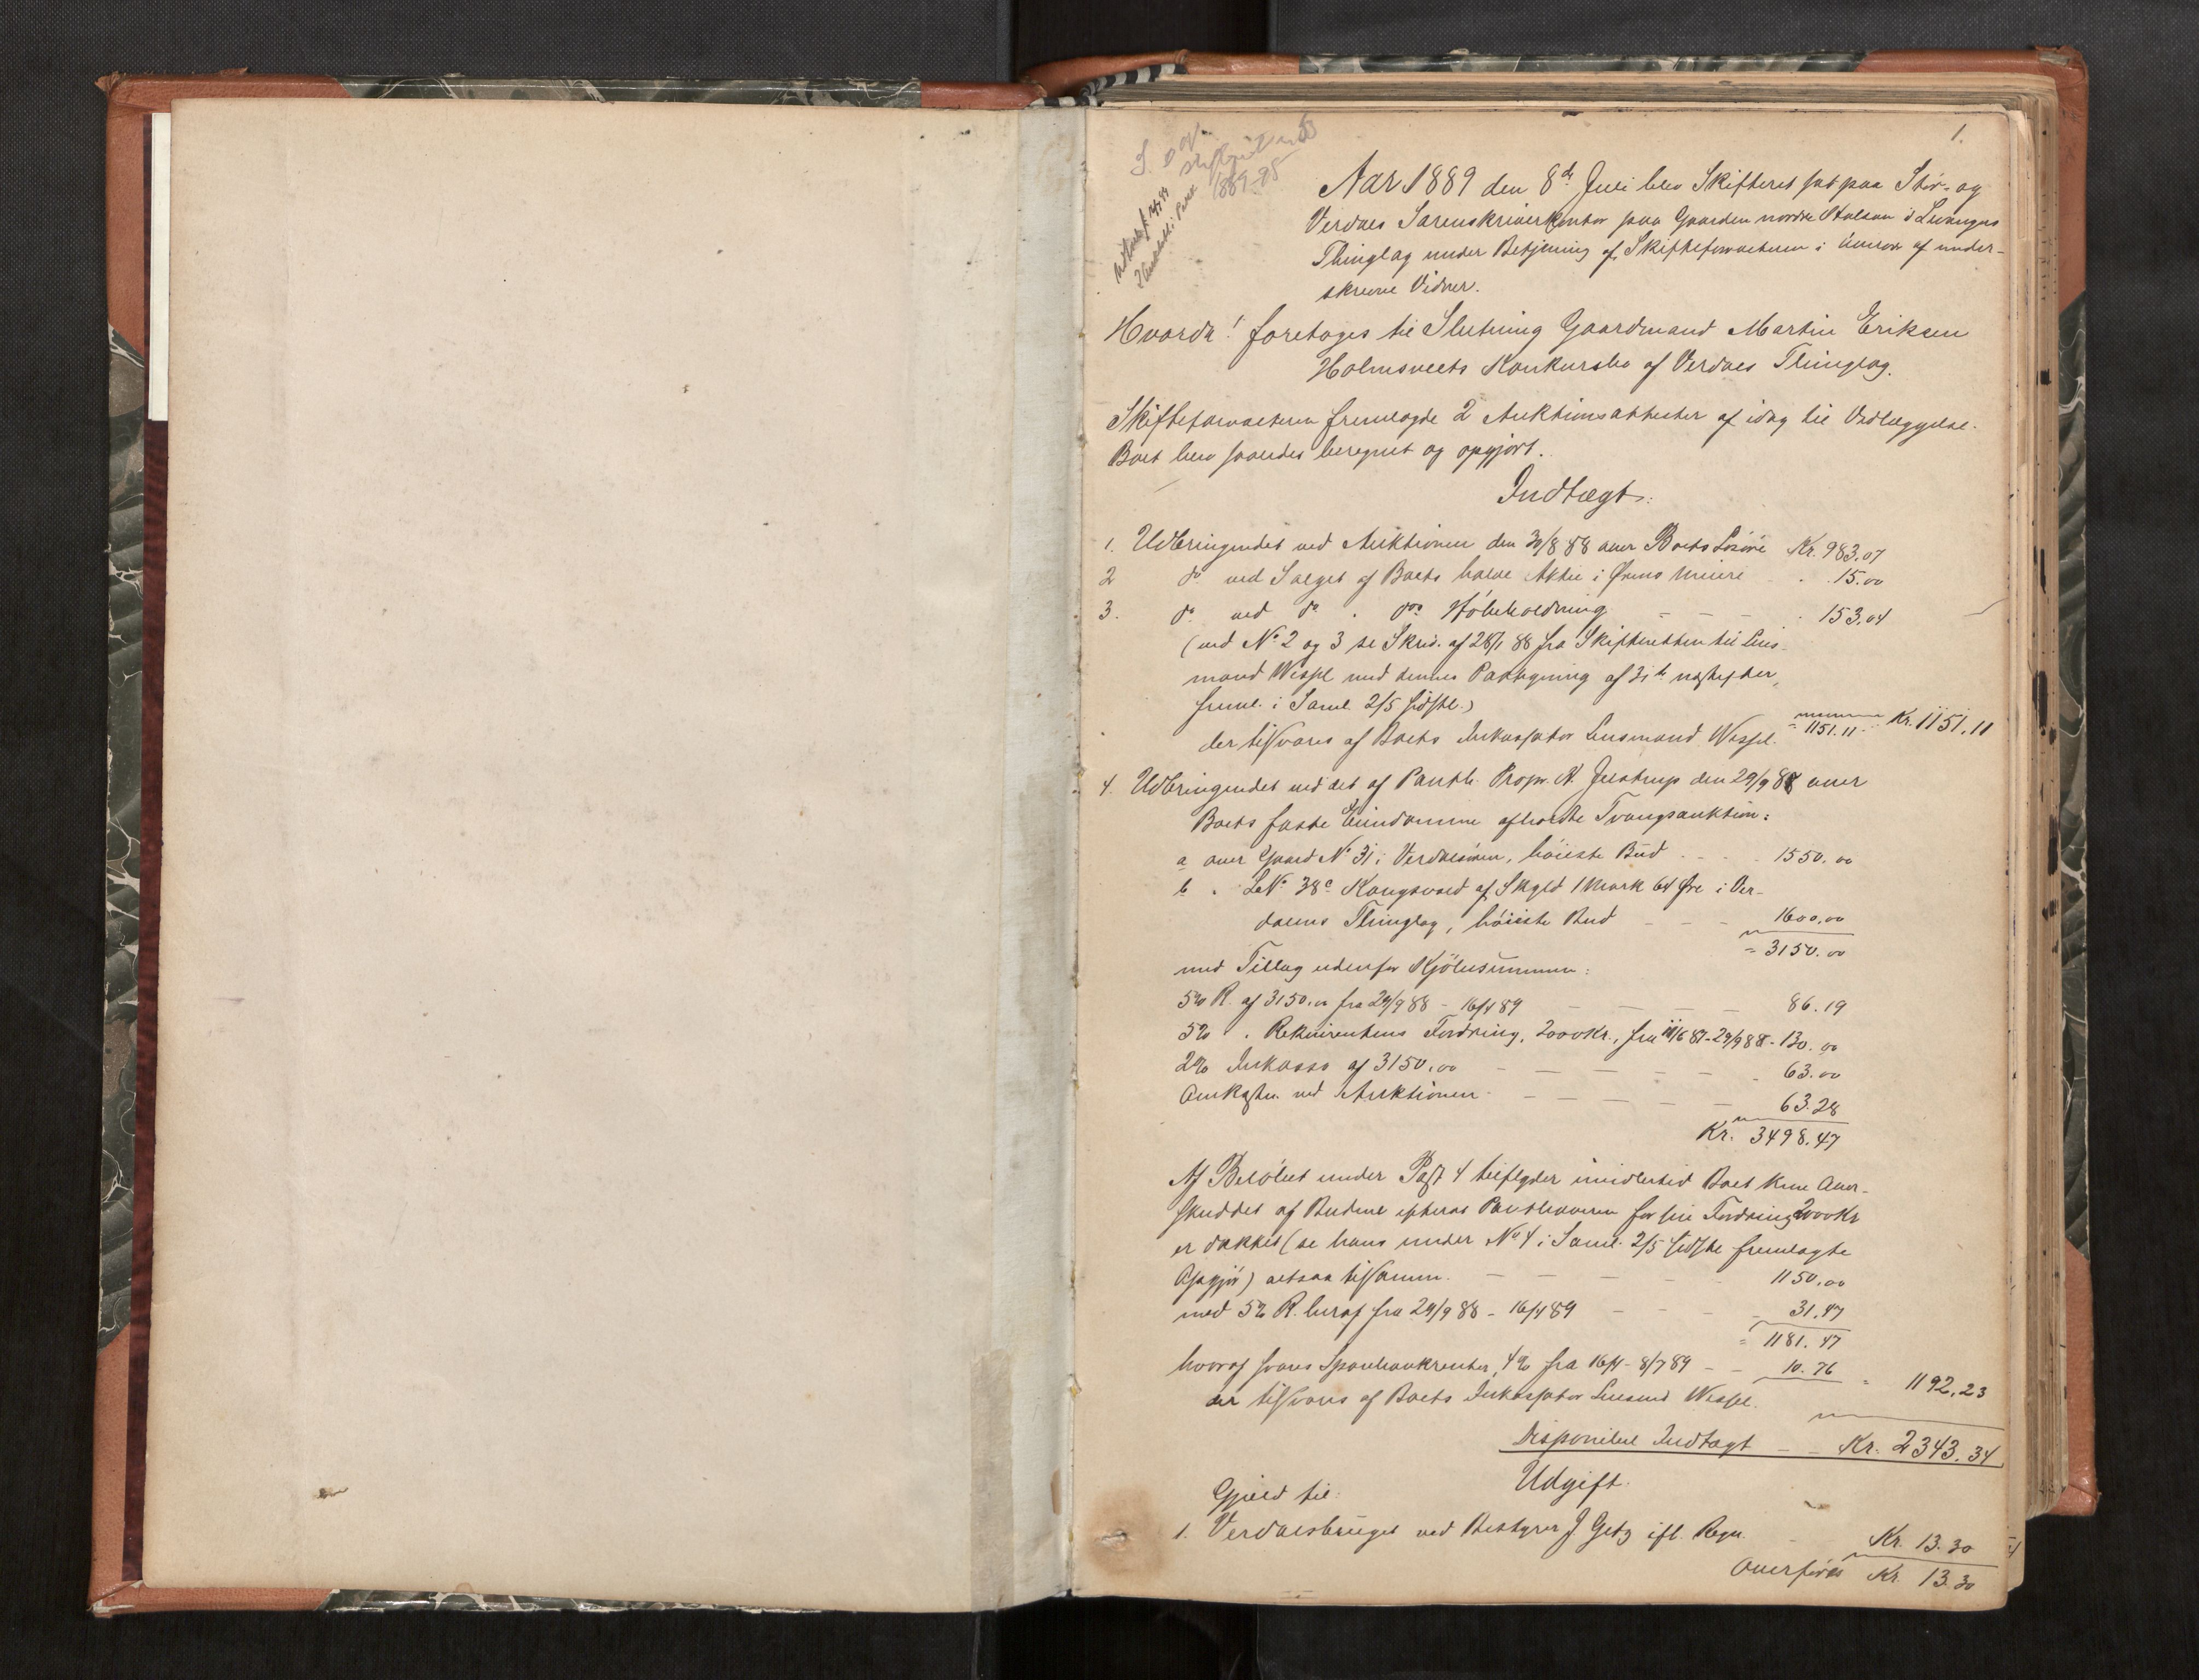 1.
1889-95
Aar 1889 den 8de Juli blev Skifteret sat paa Stør- og
Verdals Sorenskriverkontor paa Gaarden nordre Stalsan i Levangers
Thinglag under Betjening af Skifteforvalteren i Overvær af under-
skrevne Vidner.
Hvorda! foretoges til Slutning Gaardmand Martin Eriksen
Holmsveets Konkursbo af Verdals Thinglag.
Skifteforvalteren fremlagde 2 Auktionsattester af idag til Vedlæggelse.
Boet blev saaledes beregnet og opgjort.
Indtægt:
1. Udbringendet ved Auktionen den 30/8 88 over Boets Løsøre Kr. 983.07
2 do ved Salget af Boets halve Aktie i Ørens Meieri - 15.00
3. do ved do . do Høbeholdning - - - 153.04
(ved No 2 og 3 se Skriv. af 28/1 88 fra Skifteretten til Lens-
mand Wessel med dennes Paategning af 31te næstefter,
freml. i Saml. 2/5 sidstl.)
der tilsvares af Boets Inkassator Lensmand Wessel. = 1151.11 Kr. 1151.11
4. Udbringendet ved det af Panth. Propr. N. Jelstrup den 29/9 88 over
Boets faste Eiendomme afholdte Tvangsauktion:
a over Gaard No 31 i Verdalsøren, høieste Bud - - 1550.00
b . LNo 38c Kongsvold af Skyld 1 Mark 64 Øre i Ver-
dalens Thinglag, høieste Bud - - - 1600.00
= 3150.00
med Tillæg udenfor Kjøbesummen:
5% R. af 3150.00 fra 29/9 88 - 16/4 89 - - - 86.19
5% . Rekvirentens Fordring, 2000 Kr., fra 11/6 87 - 29/9 88 - 130.00
2% Inkasso af 3150.00 - - - - - 63.00
Omkostn. ved Auktionen - - - - - 63.28
Kr. 3498.47
Af Beløbet under Post 4 tilflyder imidlertid Boet kun Over-
skuddet af Budene efterat Panthaveren for sin Fordring 2000 Kr
er dækket (se hans under No 4 i Saml. 2/5 sidstl. fremlagte
Opgjør) altsaa tilsammen. - - - - 1150.00
med 5% R. heraf fra 29/9 88 - 16/4 89 - - - 31.47
= 1181.47
hvoraf svares Sparebankrenter, 4% fra 16/4 - 8/7 89 - - 10.76 = 1192.23
der tilsvares af Boets Inkassator Lensmd Wessel.
Disponibel Indtægt - - Kr. 2343.34
Udgift.
Gjæld til:
1. Verdalsbruget ved Bestyrer J. Getz ifl. Regn. - Kr. 13.30
Overføres Kr. 13.30